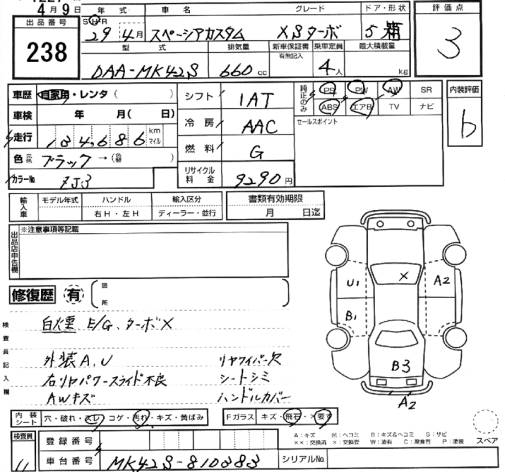 4月9日
出品番号 238
年式 車名 グレード ドア・形状 評価点
S H R 29年4月 スペーシアカスタム XSターボ 5 箱 3
型式 排気量 新車保証書 有無記入 乗車定員 最大積載量
DAA-MK42S 660cc 4人 kg
車歴 自家用・レンタ( )
車検 年 月( 日)
走行 134,686 km マイル
色 元色 ブラック→(色替 )
カラーNo ZJ3
シフト 1AT
冷房 AAC
燃料 G
リサイクル料金 9290円
純正のみ PS PW AW SR
ABS エアB TV ナビ
セールスポイント
内装評価 b
輸入車 モデル年式 ハンドル 輸入区分
右H・左H ディーラー・並行
書類有効期限
月 日迄
出品店申告欄 ※注意事項等記載
修復歴 有 箇所
検査員記入欄
白煙 E/G、ターボX
外装A、U
右リヤパワースライド不良
AWキズ
リヤワイパー欠
シートシミ
ハンドルカバー
U1 X A2
B1
B3
A2
内装シート 穴・破れ・スレ・コゲ・汚れ・キズ・黄ばみ
Fガラス キズ・飛石・×要す
A:キズ M:ヘコミ B:キズ&ヘコミ S:サビ
××:交換済 ×:交換要 W:波有 C:腐食 P:塗装
スペア
検査員
登録番号
車台番号 MK42S-810383
シリアルNo.